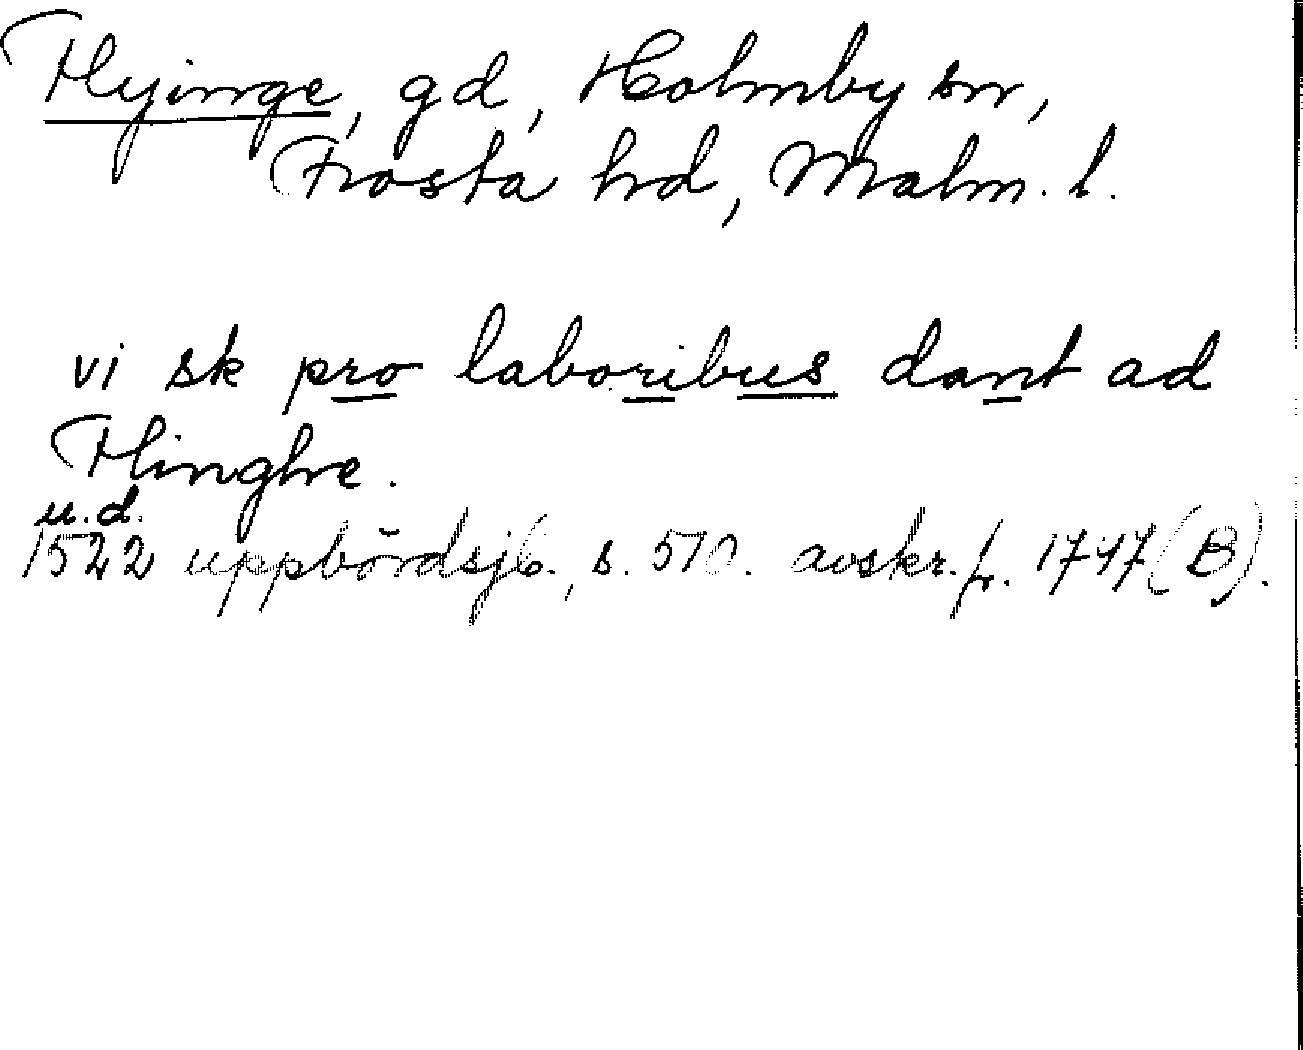 Flyinge, gd, Holmby sn,
Frosta hd, Malm. l.
vi sk pro laboribus dant ad
Flinghe.
u.d.
1522 uppbördsjb., s. 510. avskr. fr. 1747 (B).